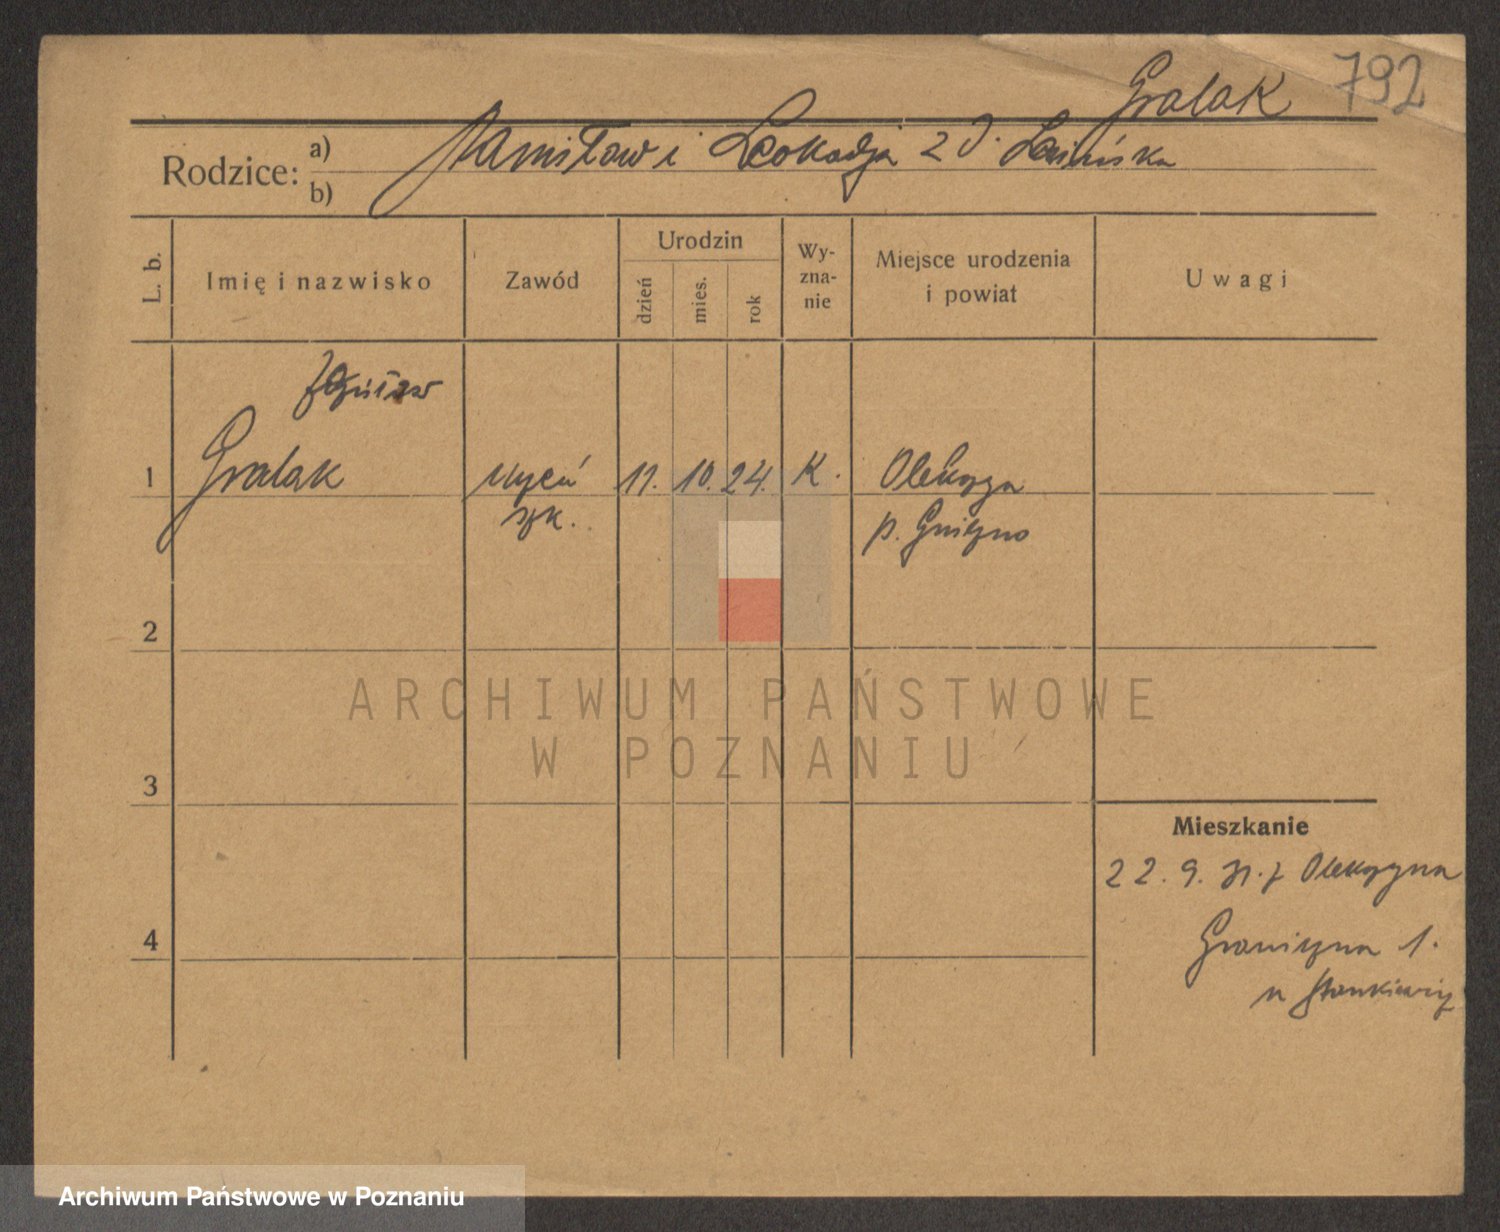 792
Gralak
Rodzice: a) Stanisław i Leokadja z d.
b)
L. b.
Imię i nazwisko
Zawód
Urodzin
dzień
mies.
rok
Wy-
zna-
nie
Miejsce urodzenia
i powiat
Uwagi
Zdzisław
1 Gralak uczeń 11. 10. 24. K.
szk. p. Gniezno
2
3
4
Mieszkanie
22. 9. 31. z
Graniczna 1.
u Stankiewicz
ARCHIWUM PAŃSTWOWE
W POZNANIU
Archiwum Państwowe w Poznaniu